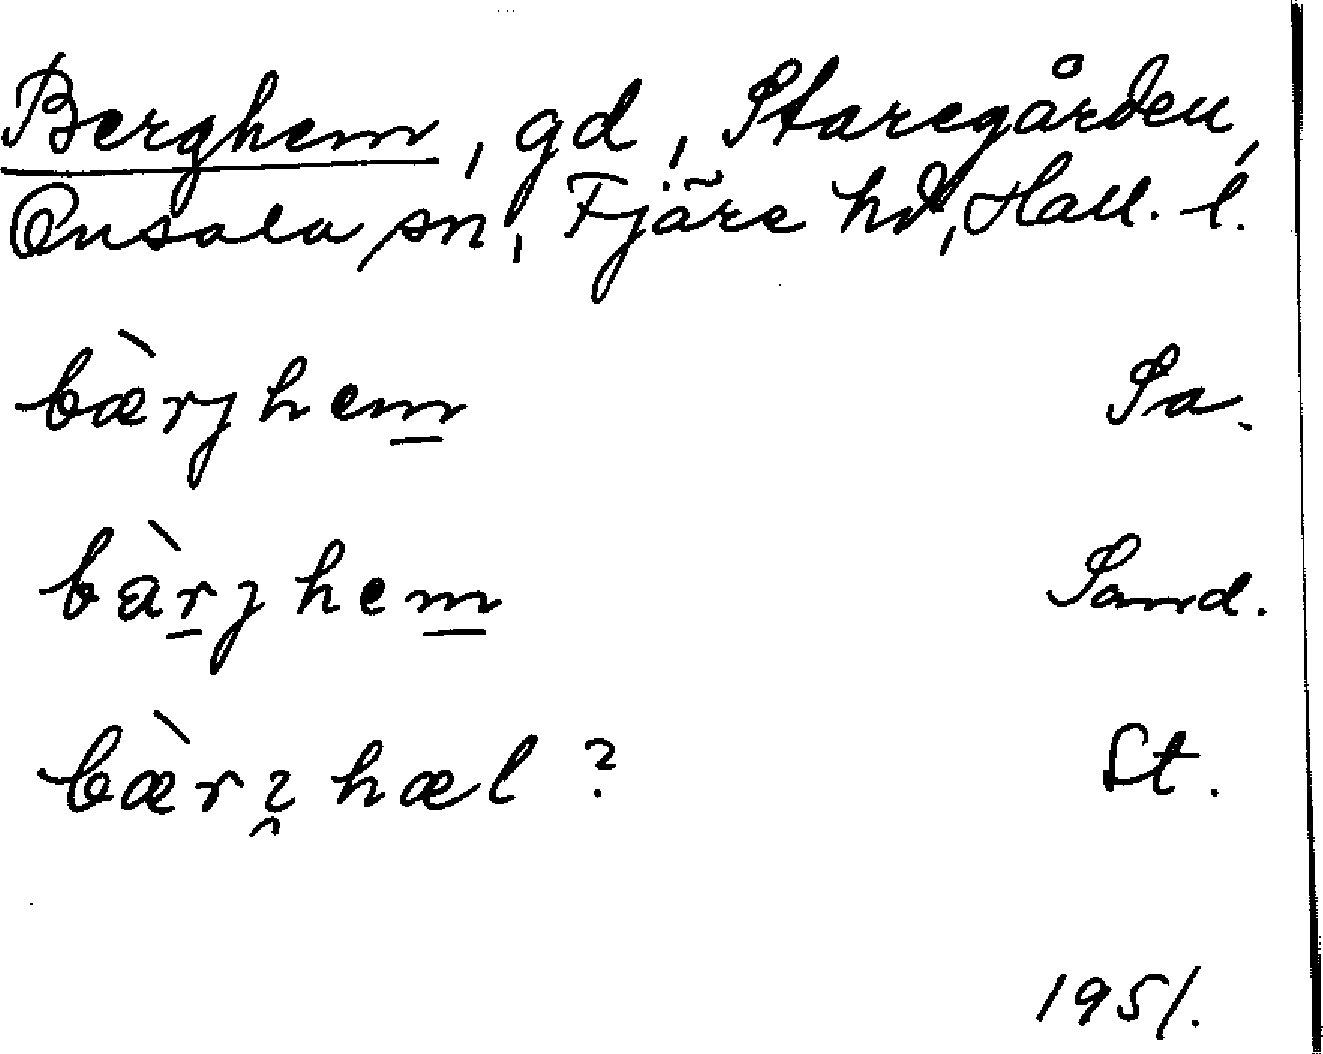 Berghem, gd, Staregården,
Onsala sn, Fjäre hd, Hall. l.
bæ̀rjhem̲ Sa.
bàr̲jhem̲ Sand.
hæl? St.
1951.